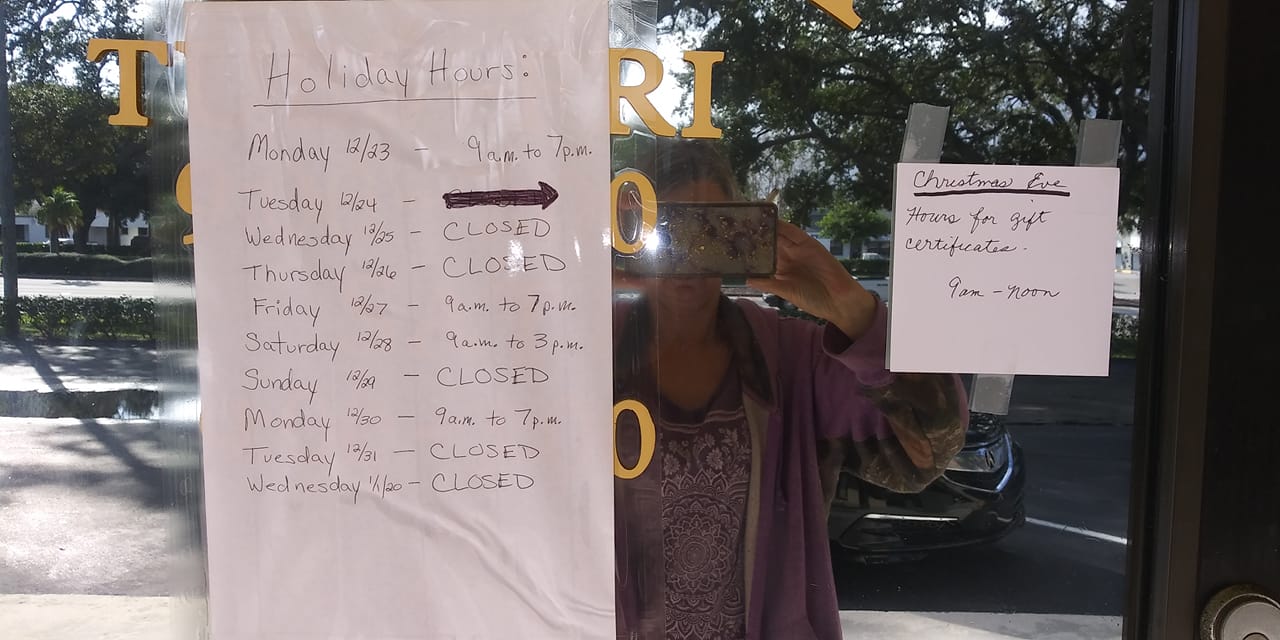 Holiday Hours:
Monday 12/23 - 9a.m. to 7p.m.
Tuesday 12/24 -
Wednesday 12/25 - CLOSED
Thursday 12/26 - CLOSED
Friday 12/27 - 9a.m. to 7p.m.
Saturday 12/28 - 9a.m. to 3p.m.
Sunday 12/29 - CLOSED
Monday 12/30 - 9a.m. to 7p.m.
Tuesday 12/31 - CLOSED
Wednesday 1/1/20 - CLOSED
T
RI
0
0
Christmas Eve
Hours for gift
certificates.
9am - noon